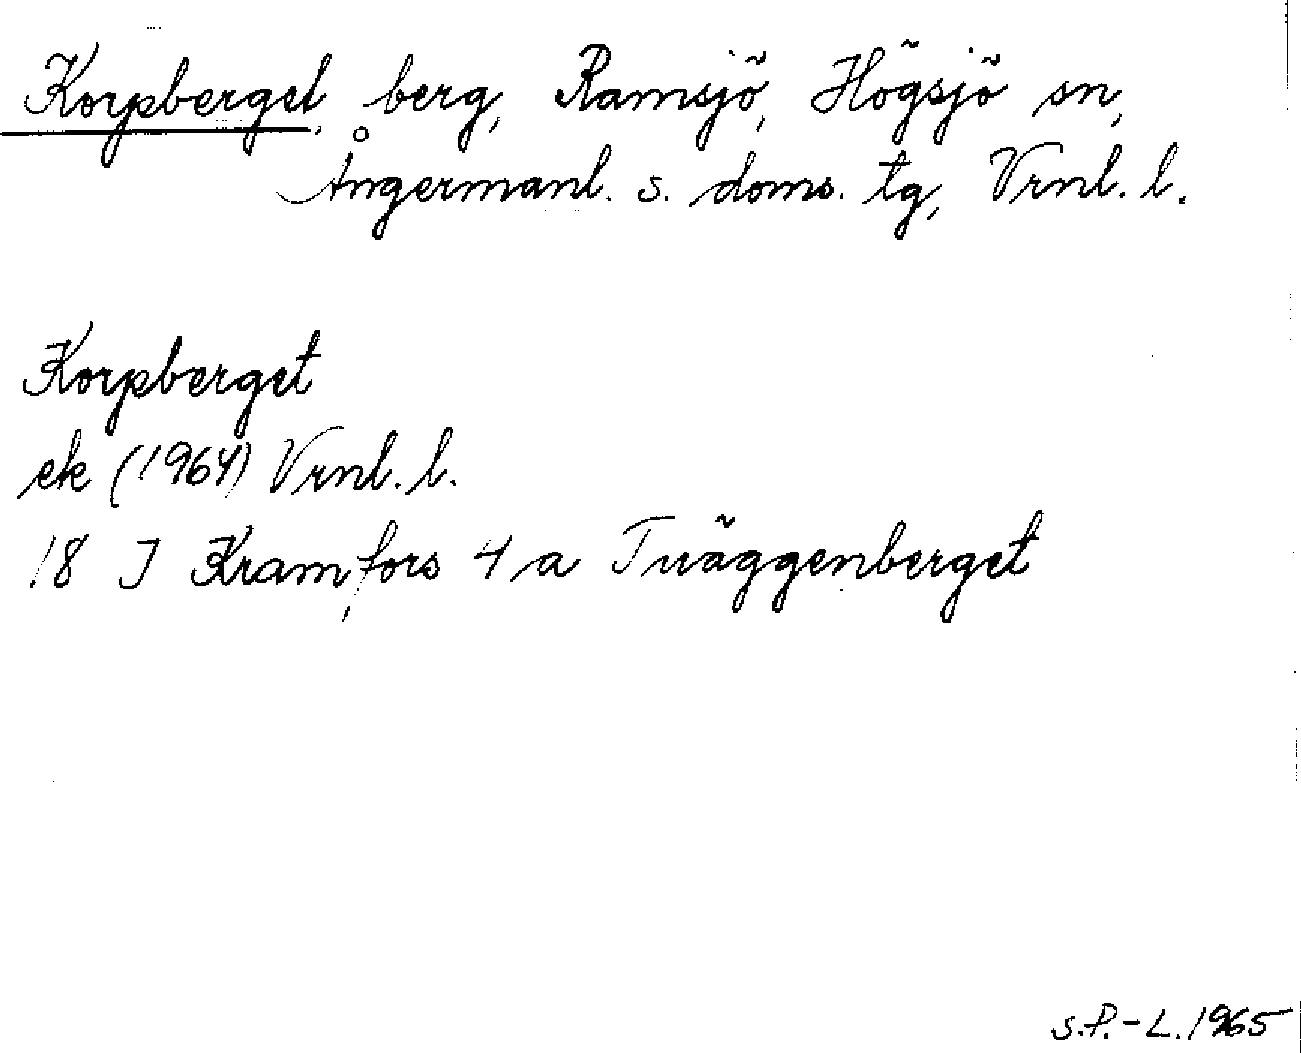 Korpberget, berg, Ramsjö, Högsjö sn,
Ångermanl. s. doms. tg, Vrnl. l.
Korpberget
ek (1964) Vrnl. l.
18 J Kramfors 4 a Tväggenberget
S.P.-L. 1965